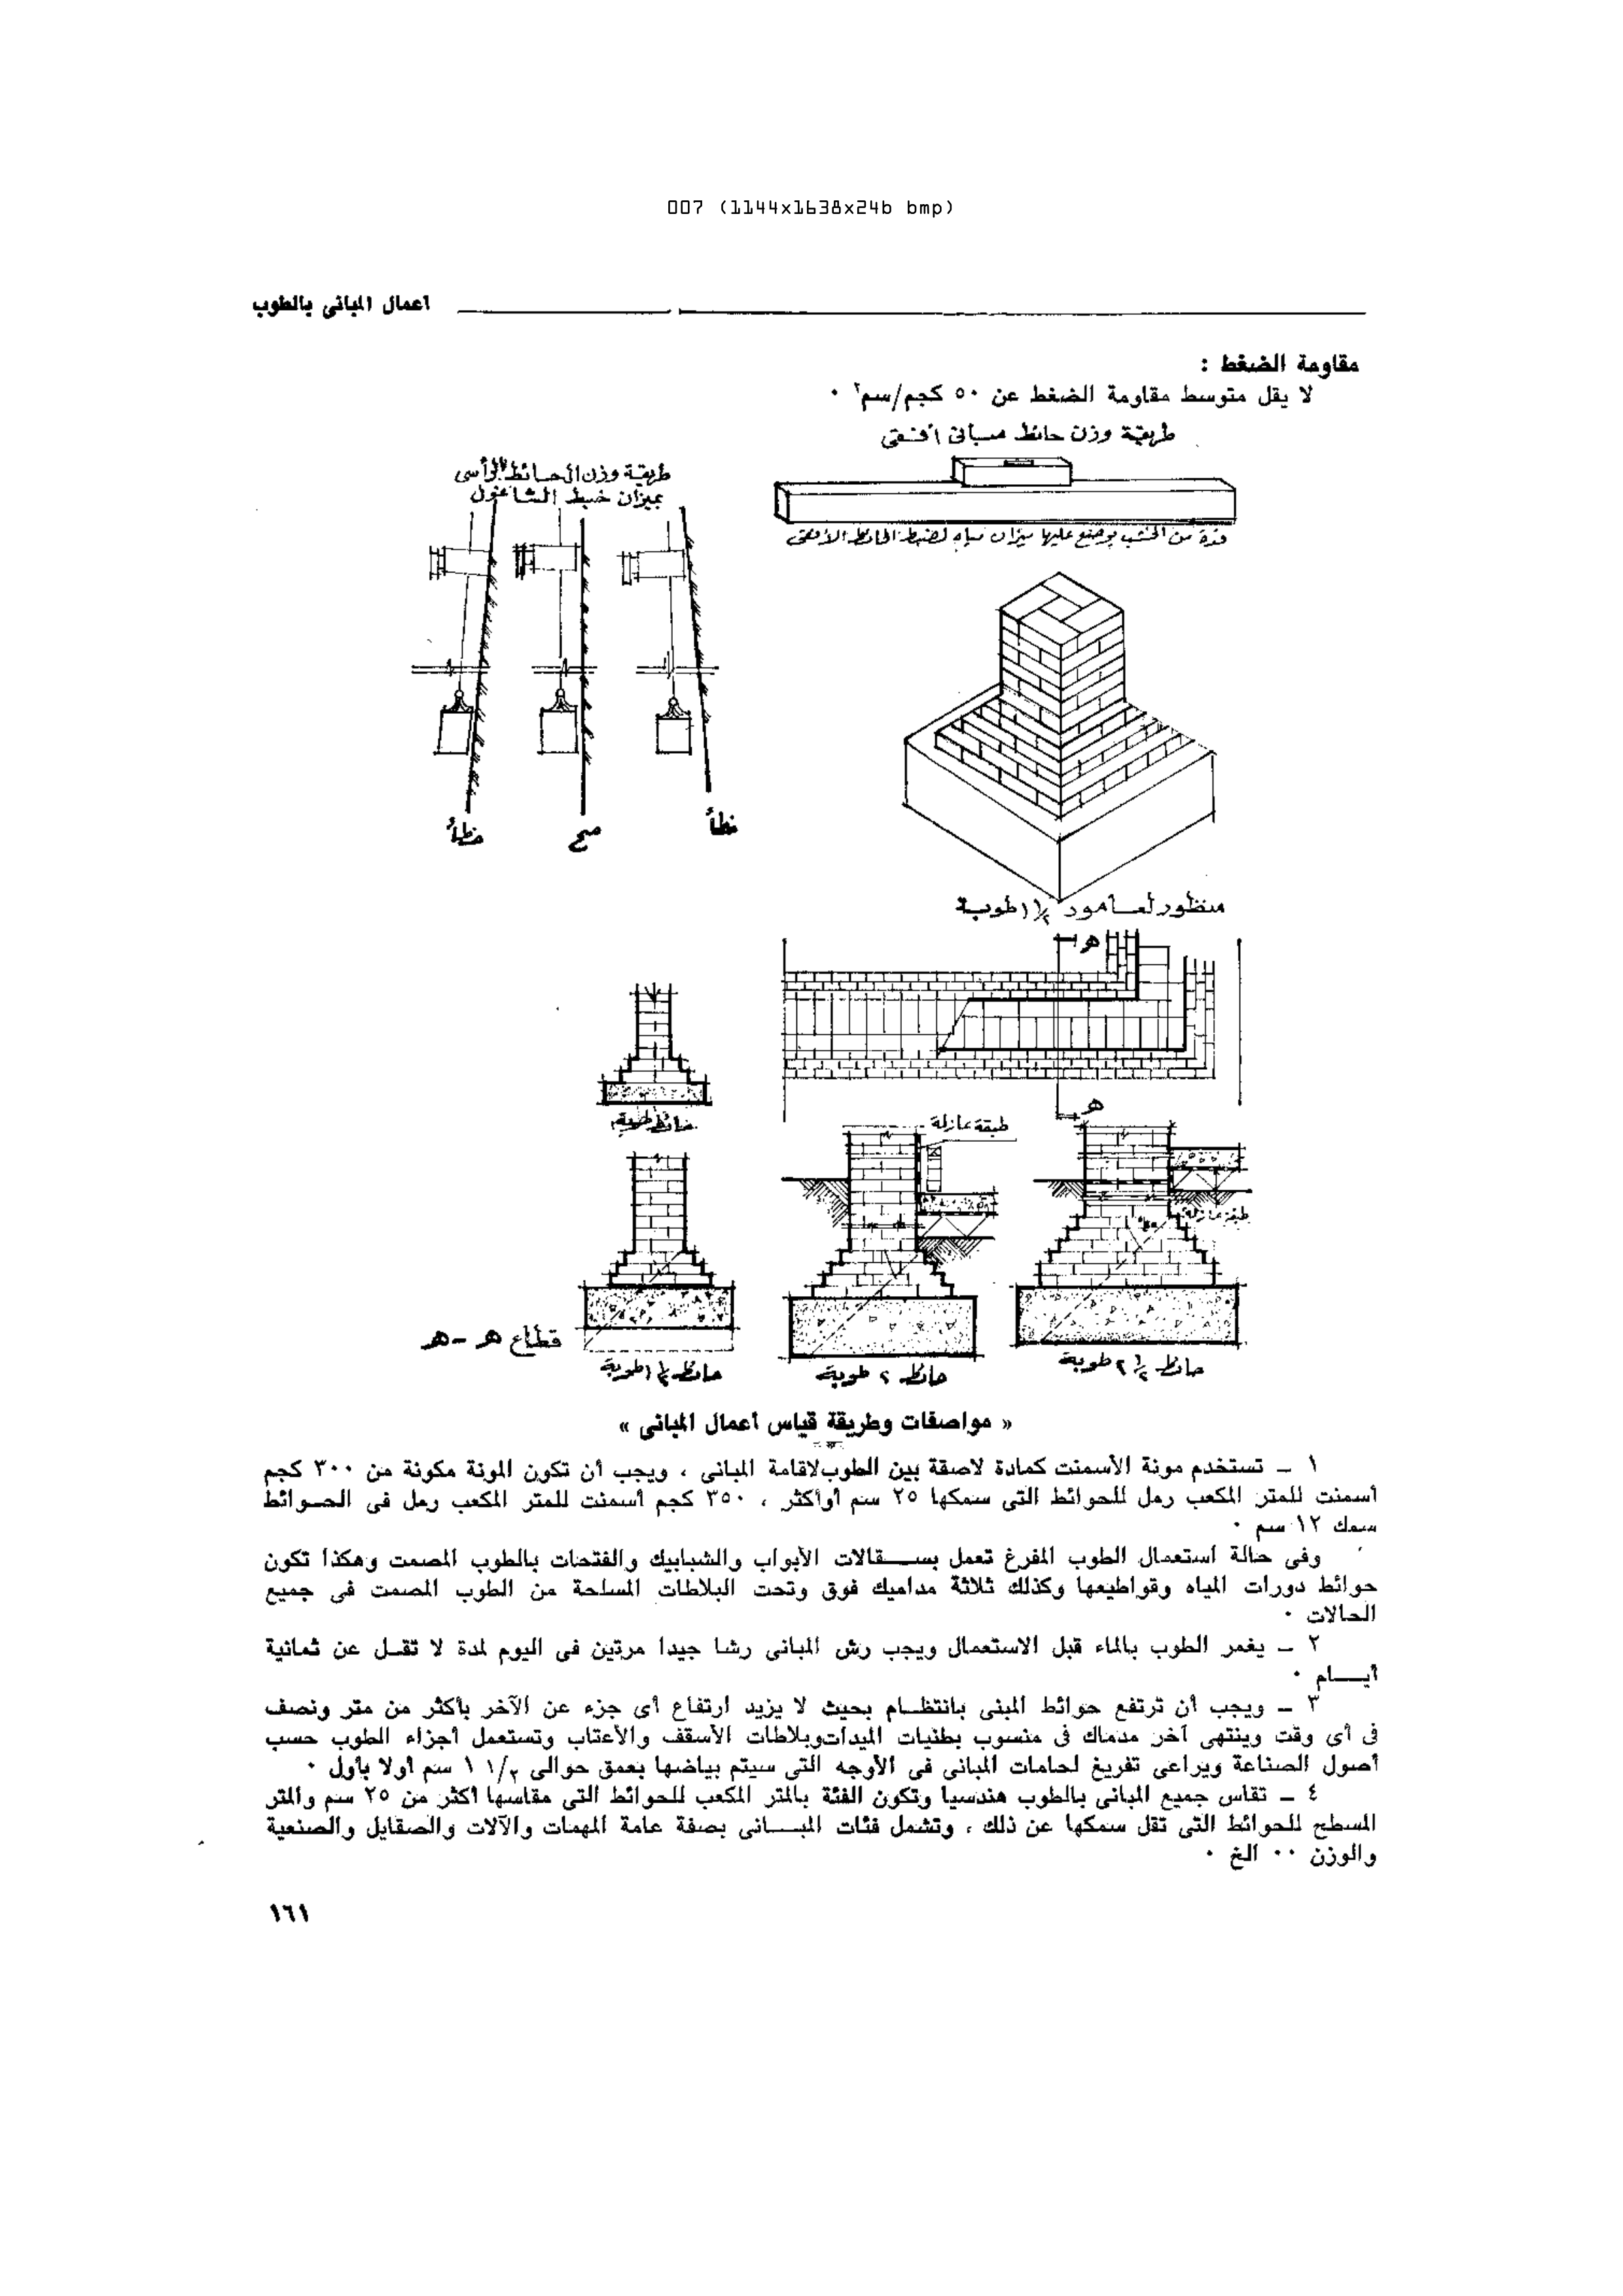 007 (1144x1638x24b bmp)
أعمال المبانى بالطوب
مقاومة الضغط :
لا يقل متوسط مقاومة الضغط عن ٥٠ كجم/سم٢ ٠
طريقة وزن حائط مبانى أفقى
طريقة وزن الحائط الرأسى
بميزان خيط الشاغول
قدة من الخشب يوضع عليها ميزان مياه لضبط الحائط الأفقى
خطأ
صح
خطأ
منظور لعامود ١ ١/٢ طوبة
هـ
هـ
حائط طوبة
طبقة عازلة
طبقة عازلة
قطاع هـ - هـ
حائط ١ ١/٢ طوبة
حائط ٢ طوبة
حائط ٢ ١/٢ طوبة
« مواصفات وطريقة قياس أعمال المبانى »
١ - تستخدم مونة الأسمنت كمادة لاصقة بين الطوب لاقامة المبانى ، ويجب أن تكون المونة مكونة من ٣٠٠ كجم
أسمنت للمتر المكعب رمل للحوائط التى سمكها ٢٥ سم أو أكثر ، ٣٥٠ كجم أسمنت للمتر المكعب رمل فى الحــوائط
سمك ١٢ سم ٠
وفى حالة استعمال الطوب المفرغ تعمل بســـقالات الأبواب والشبابيك والفتحات بالطوب المصمت وهكذا تكون
حوائط دورات المياه وقواطيعها وكذلك ثلاثة مداميك فوق وتحت البلاطات المسلحة من الطوب المصمت فى جميع
الحالات ٠
٢ - يغمر الطوب بالماء قبل الاستعمال ويجب رش المبانى رشا جيدا مرتين فى اليوم لمدة لا تقــل عن ثمانية
أيـــام ٠
٣ - ويجب أن ترتفع حوائط المبنى بانتظــام بحيث لا يزيد ارتفاع أى جزء عن الآخر بأكثر من متر ونصف
فى أى وقت وينتهى آخر مدماك فى منسوب بطنيات الميدات وبلاطات الأسقف والأعتاب وتستعمل أجزاء الطوب حسب
أصول الصناعة ويراعى تفريغ لحامات المبانى فى الأوجه التى سيتم بياضها بعمق حوالى ١/٢ ١ سم أولا بأول ٠
٤ - تقاس جميع المبانى بالطوب هندسيا وتكون الفئة بالمتر المكعب للحوائط التى مقاسها أكثر من ٢٥ سم والمتر
المسطح للحوائط التى تقل سمكها عن ذلك ، وتشمل فئات المبـــانى بصفة عامة المهمات والآلات والصقايل والصنعية
والوزن ٠٠ الخ ٠
١٦١